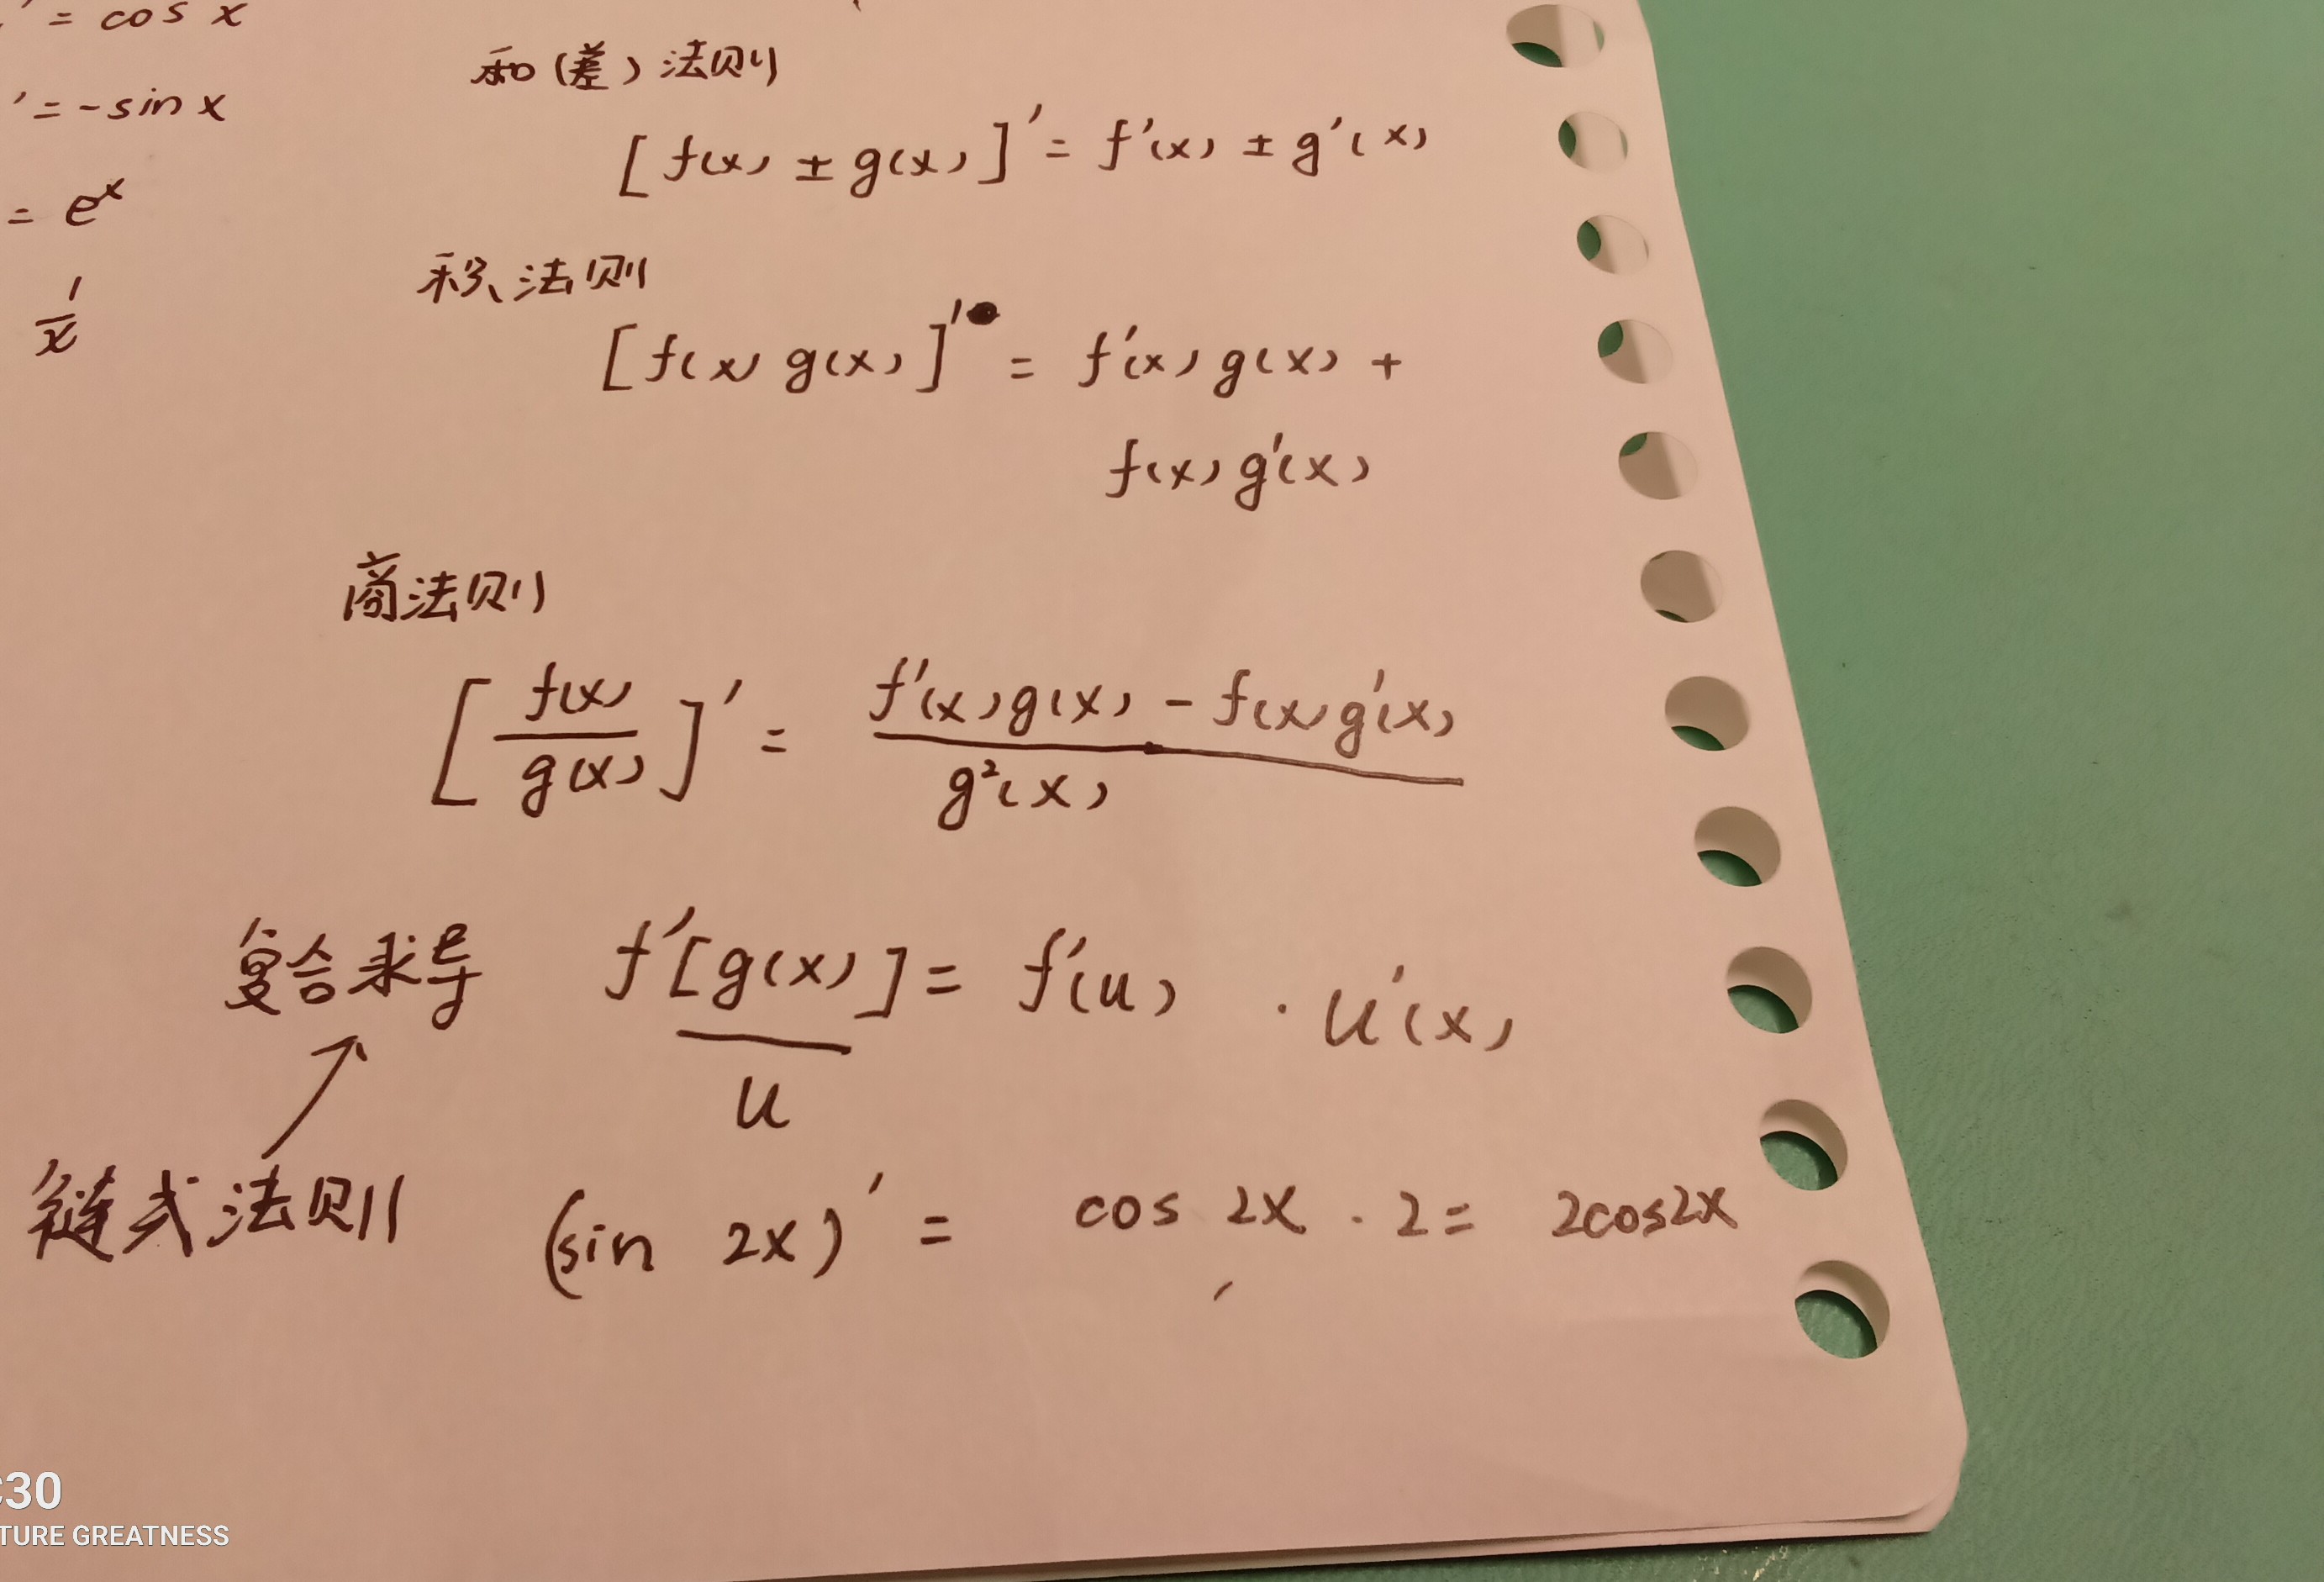 ' = cos x
' = -sin x
= eˣ
1/x
和(差)法则
[f(x) ± g(x)]' = f'(x) ± g'(x)
积法则
[f(x) g(x)]' = f'(x) g(x) +
f(x) g'(x)
商法则
[f(x)/g(x)]' = (f'(x)g(x) - f(x)g'(x))/g²(x)
复合求导 f'[g(x)] = f'(u) · u'(x)
u
链式法则 (sin 2x)' = cos 2x · 2 = 2cos2x
30
TURE GREATNESS